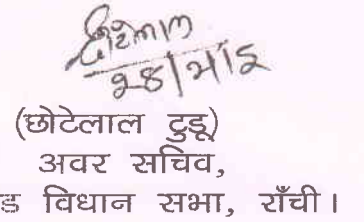 छोटेलाल
(छोटेलाल टुडू)
अवर सचिव,
ड विधान सभा, राँची।